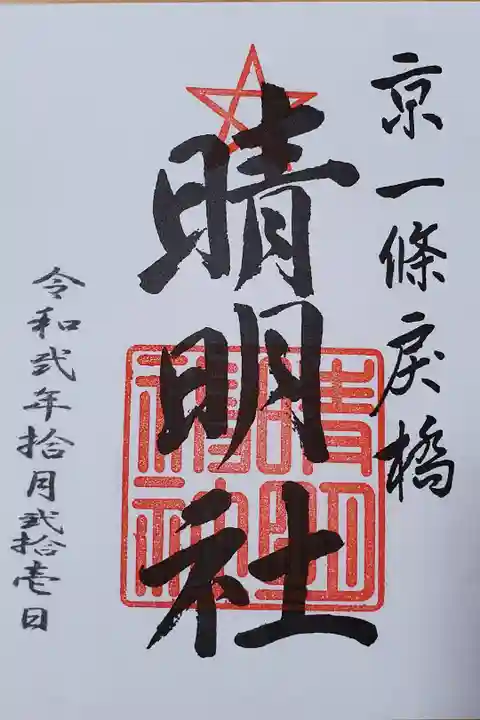 京一條戻橋
晴明社
晴明神社
令和弐年拾月弐拾壱日